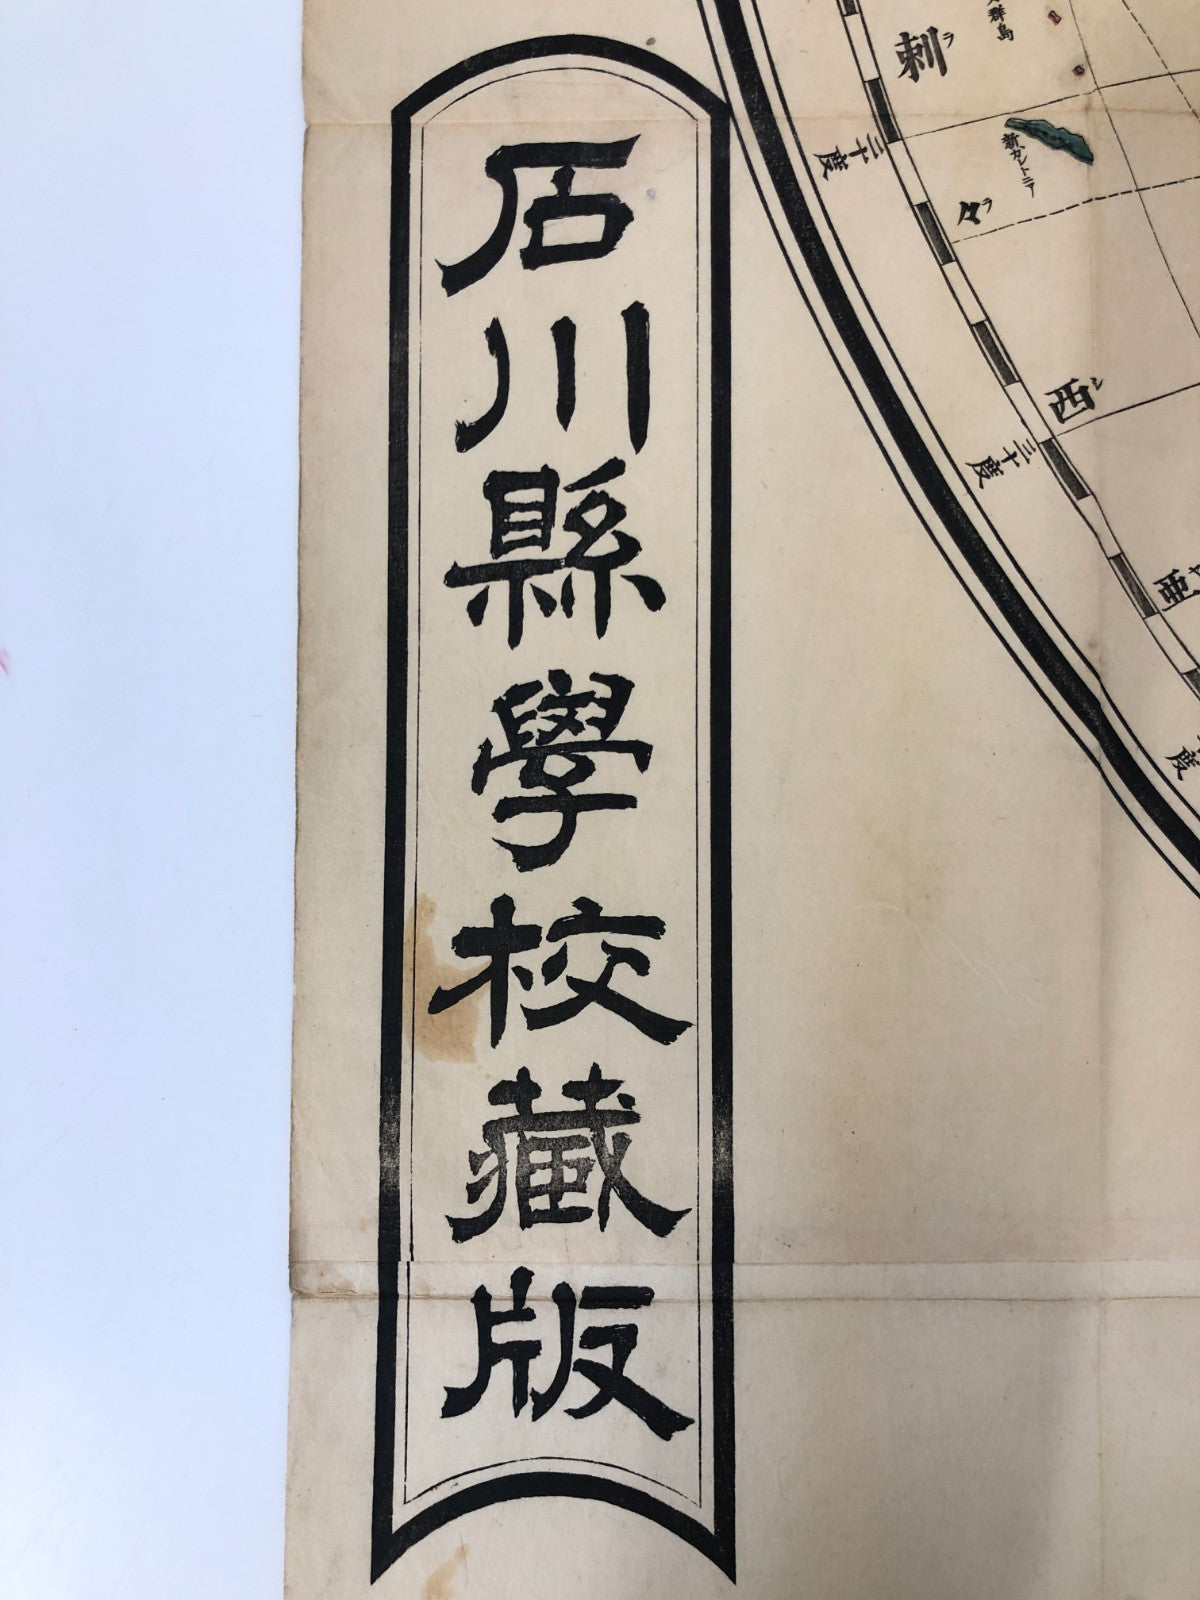 石川縣學校藏版
刺ラ
群島
二十度
新カレドニア
々ラ
西シ
三十度
亜
度